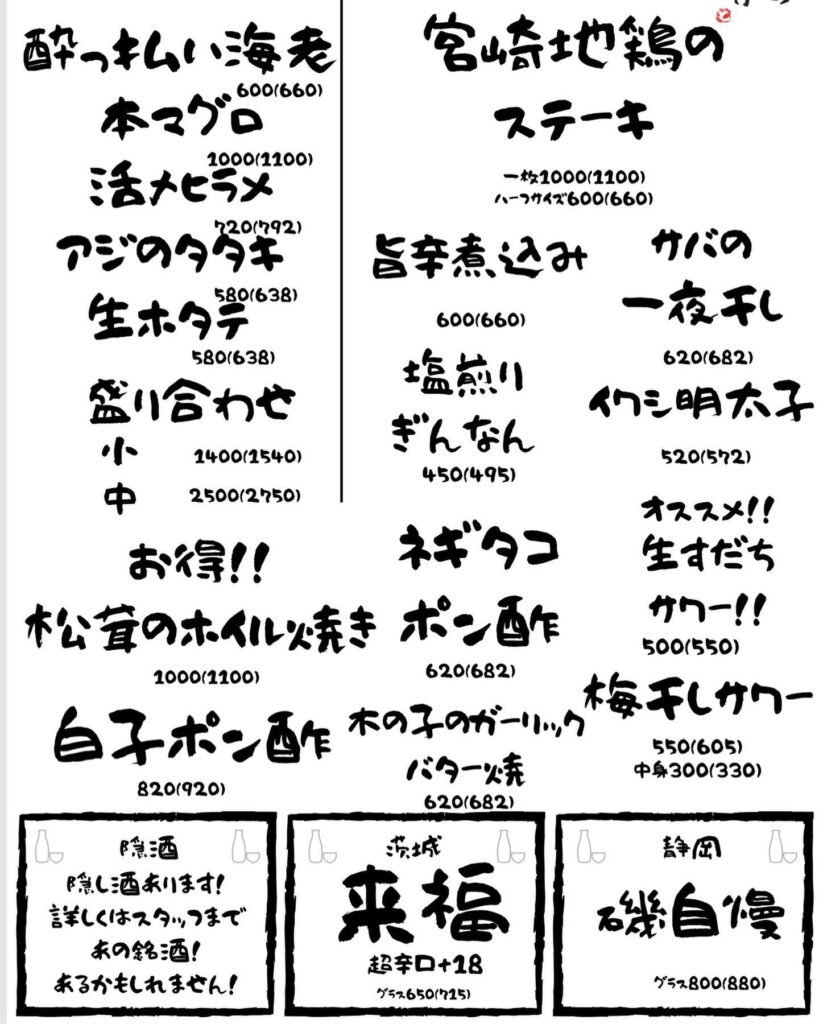 酔っ払い海老
600(660)
本マグロ
1000(1100)
活〆ヒラメ
720(792)
アジのタタキ
580(638)
生ホタテ
580(638)
盛り合わせ
小 1400(1540)
中 2500(2750)
宮崎地鶏の
ステーキ
一枚1000(1100)
ハーフサイズ600(660)
旨辛煮込み
600(660)
サバの
一夜干し
620(682)
塩煎り
ぎんなん
450(495)
イワシ明太子
520(572)
お得!!
松茸のホイル焼き
1000(1100)
ネギタコ
ポン酢
620(682)
オススメ!!
生すだち
サワー!!
500(550)
白子ポン酢
820(920)
木の子のガーリック
バター焼
620(682)
梅干しサワー
550(605)
中身300(330)
隠酒
隠し酒あります!
詳しくはスタッフまで
あの銘酒!
あるかもしれません!
茨城
来福
超辛口+18
グラス650(715)
静岡
磯自慢
グラス800(880)